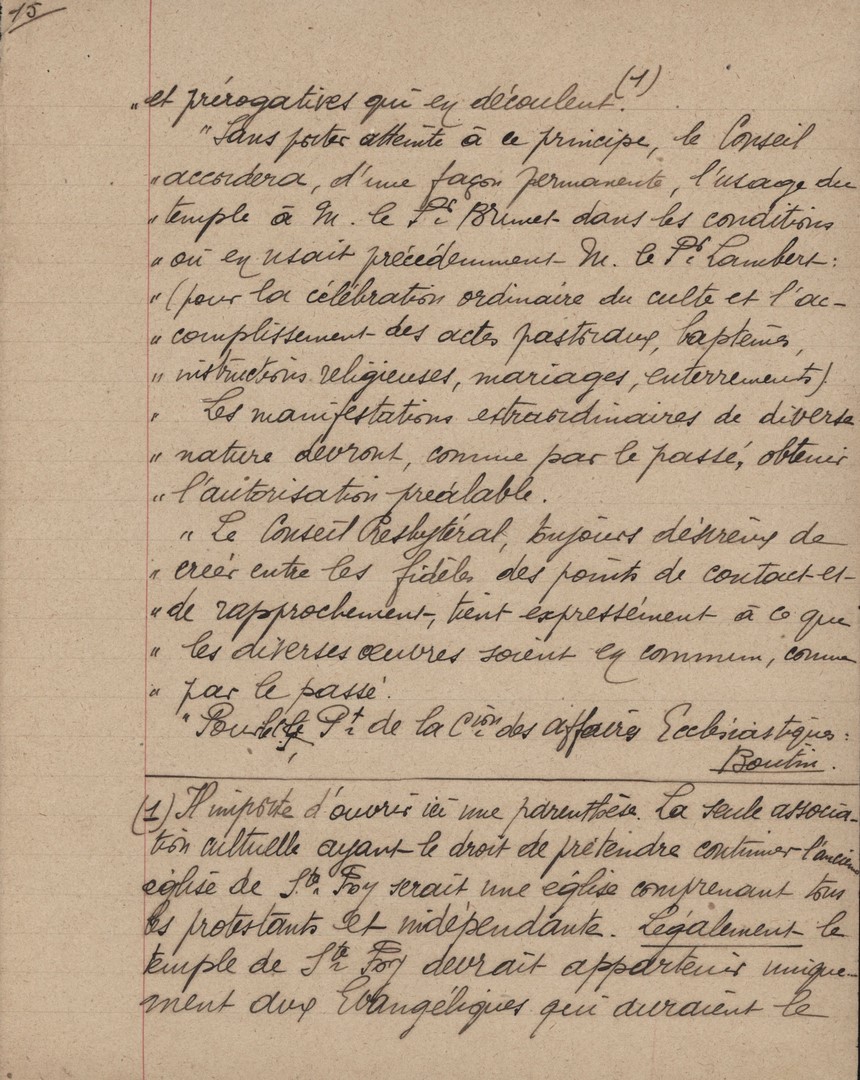 15
„ et prérogatives qui en découlent. (1)
" Sans porter atteinte à ce principe, le Conseil
" accordera, d'une façon permanente, l'usage du
" temple à M. le Pr Brunet dans les conditions
" où en usait précédemment M. le Pr Lambert :
" (pour la célébration ordinaire du culte et l'ac-
" complissement des actes pastoraux, baptêmes,
" instructions religieuses, mariages, enterrements)
" Les manifestations extraordinaires de diverse
" nature devront, comme par le passé, obtenir
" l'autorisation préalable.
" Le Conseil Presbytéral, toujours désireux de
" créer entre les fidèles des points de contact et
" de rapprochement, tient expressément à ce que
" les diverses œuvres soient en commun, comme
" par le passé.
" Pour le Pt de la Cion des affaires Ecclésiastiques :
Boutin.
(1) Il importe d'ouvrir ici une parenthèse. La seule associa-
tion cultuelle ayant le droit de prétendre continuer l'ancienne
église de Ste Foy serait une église comprenant tous
les protestants et indépendante. Légalement le
temple de Ste Foy devrait appartenir unique-
ment aux Evangéliques qui auraient le